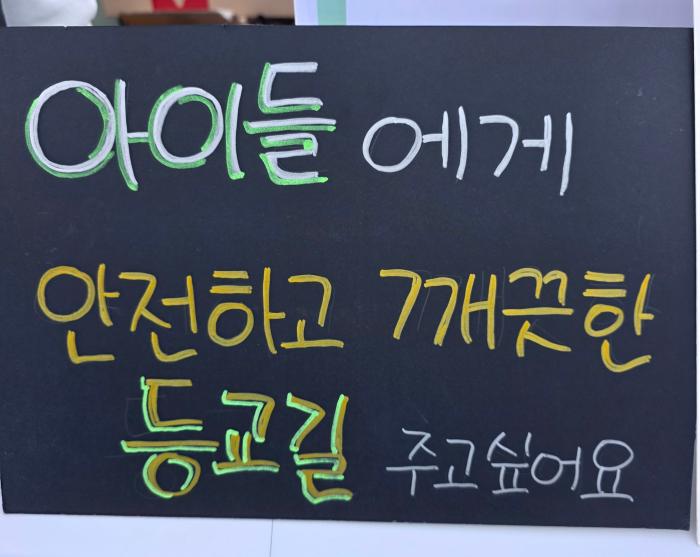 아이들에게
안전하고 깨끗한
등교길 주고싶어요